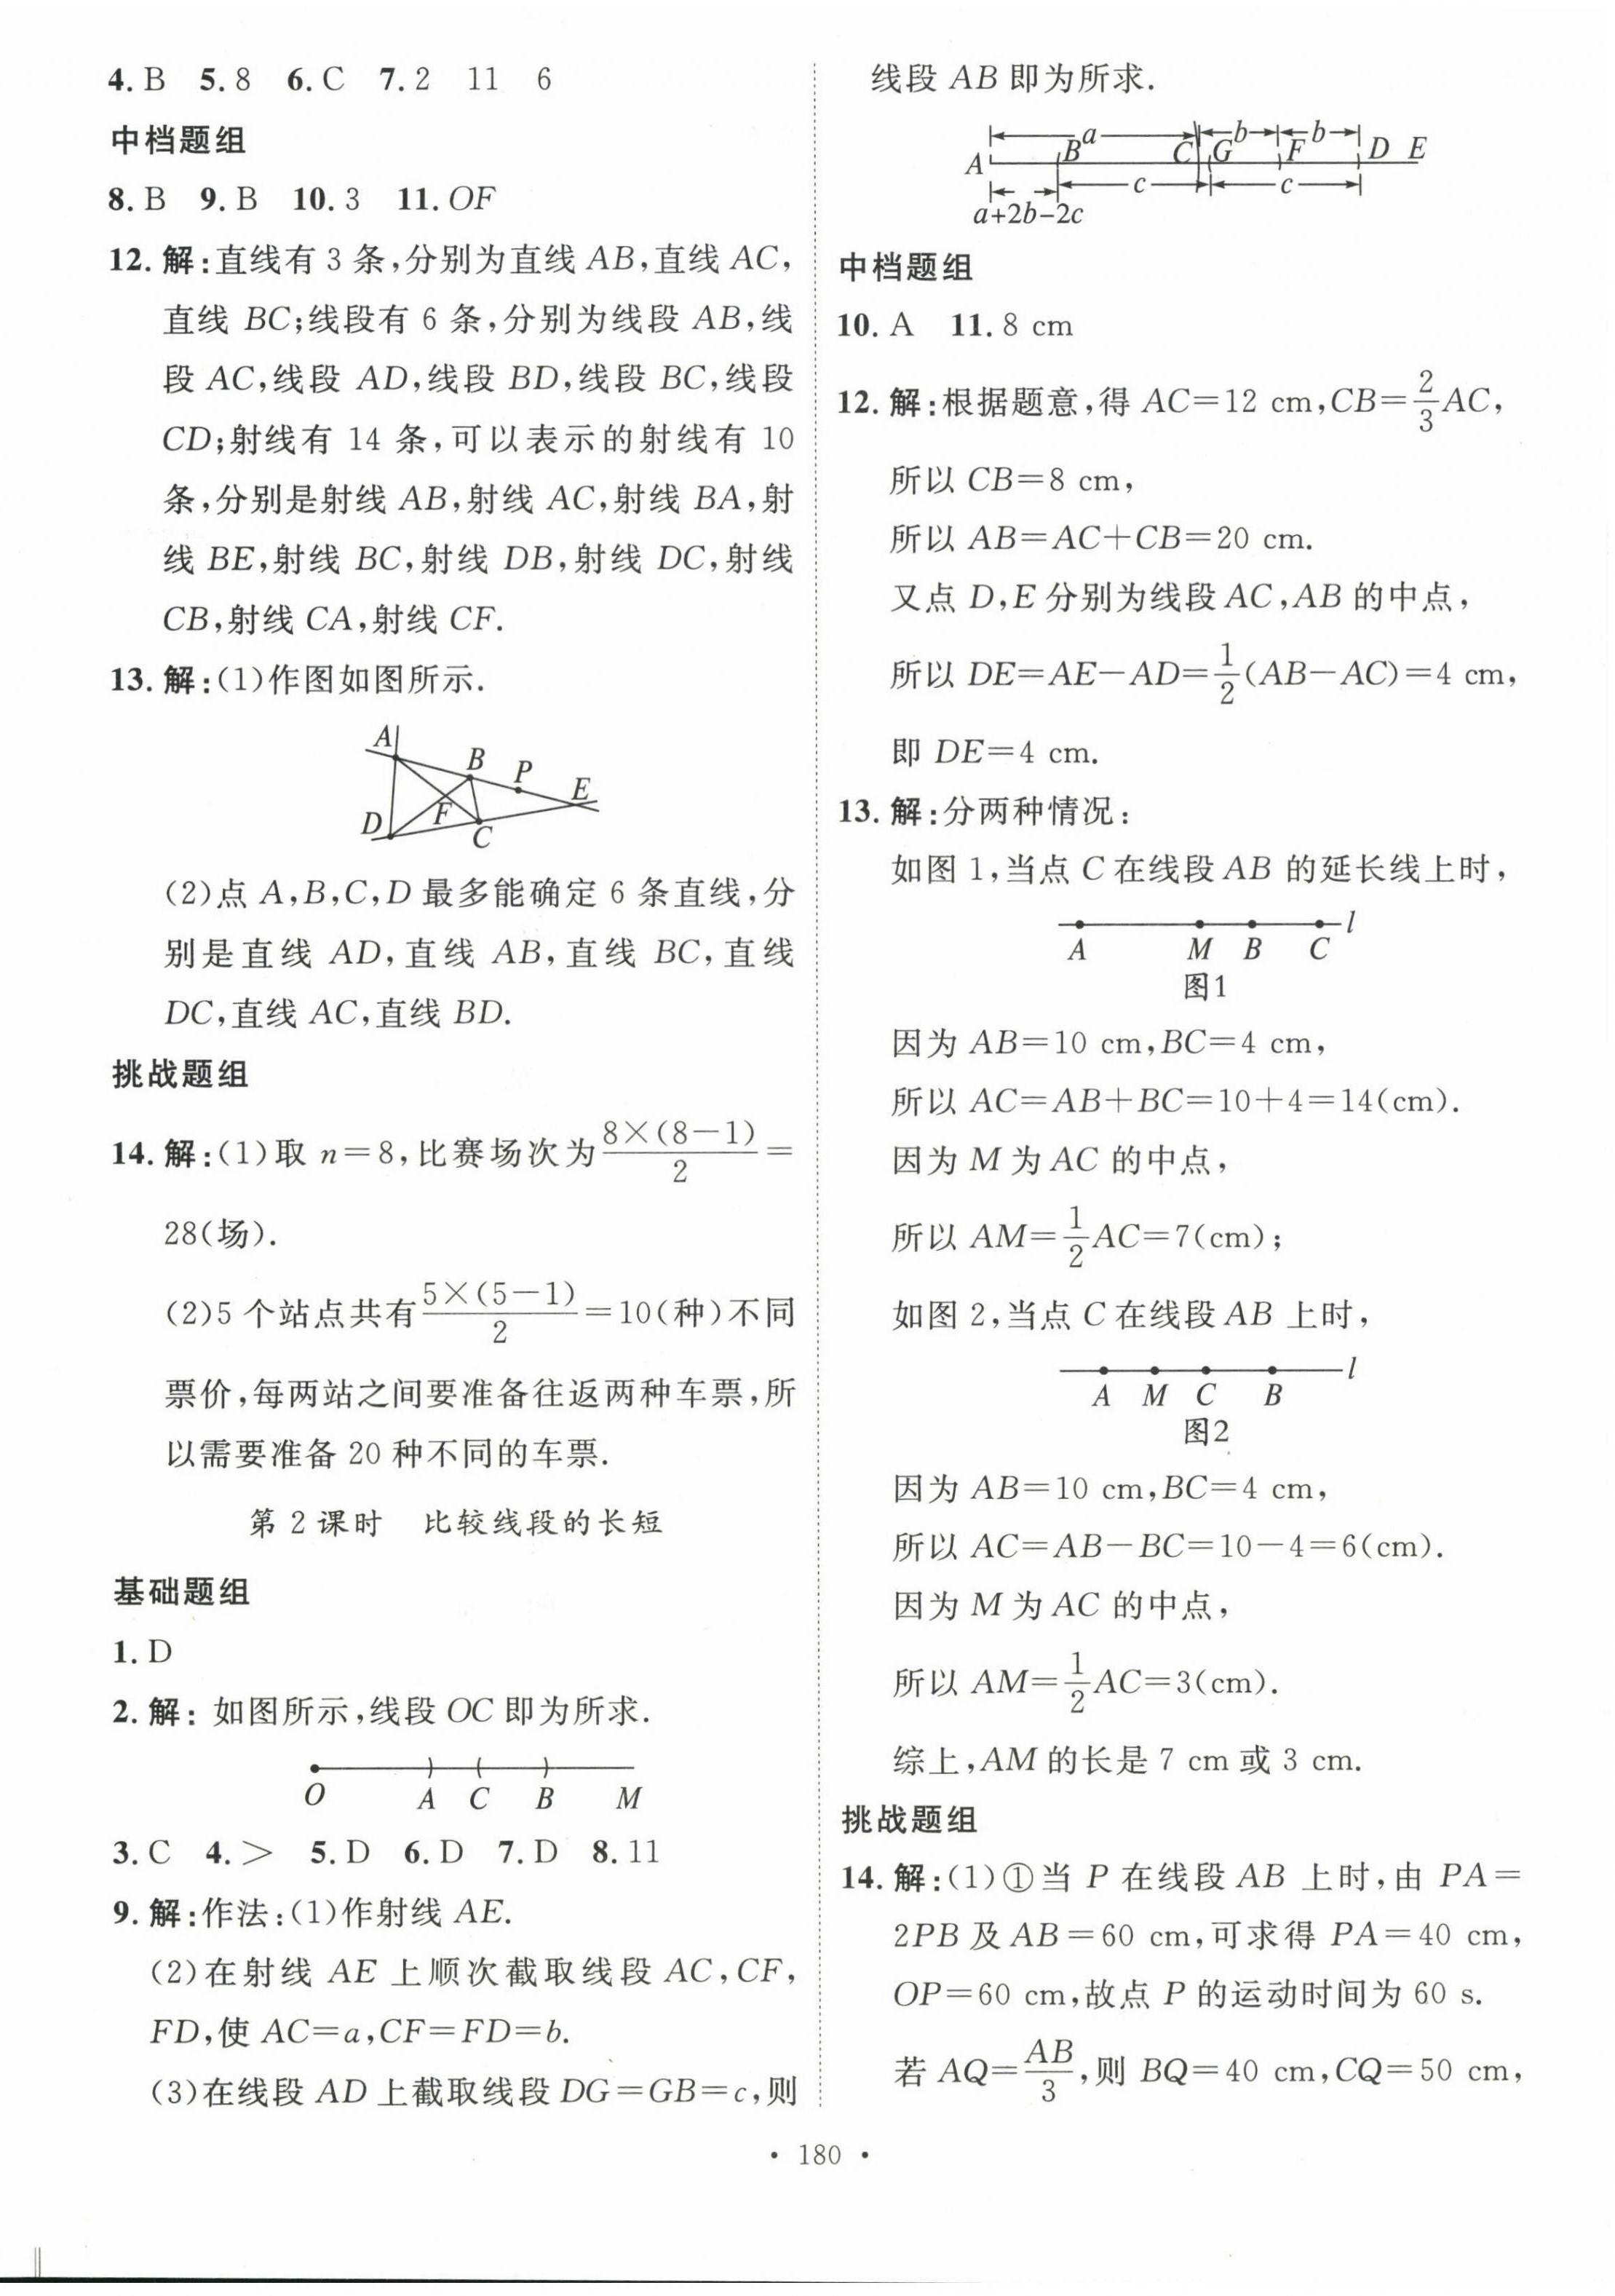 4. B  5. 8  6. C  7. 2  11  6
中档题组
8. B  9. B  10. 3  11. OF
12. 解:直线有 3 条,分别为直线 AB,直线 AC,
直线 BC;线段有 6 条,分别为线段 AB,线
段 AC,线段 AD,线段 BD,线段 BC,线段
CD;射线有 14 条,可以表示的射线有 10
条,分别是射线 AB,射线 AC,射线 BA,射
线 BE,射线 BC,射线 DB,射线 DC,射线
CB,射线 CA,射线 CF.
13. 解:(1)作图如图所示.
A
B
P
E
D
F
C
(2)点 A,B,C,D 最多能确定 6 条直线,分
别是直线 AD,直线 AB,直线 BC,直线
DC,直线 AC,直线 BD.
挑战题组
14. 解:(1)取 n=8,比赛场次为 8×(8-1)/2 =
28(场).
(2)5 个站点共有 5×(5-1)/2 =10(种)不同
票价,每两站之间要准备往返两种车票,所
以需要准备 20 种不同的车票.
第 2 课时  比较线段的长短
基础题组
1. D
2. 解: 如图所示,线段 OC 即为所求.
O A C B M
3. C  4. >  5. D  6. D  7. D  8. 11
9. 解:作法:(1)作射线 AE.
(2)在射线 AE 上顺次截取线段 AC,CF,
FD,使 AC=a,CF=FD=b.
(3)在线段 AD 上截取线段 DG=GB=c,则
线段 AB 即为所求.
a b b
A B C G F D E
c c
a+2b-2c
中档题组
10. A  11. 8 cm
12. 解:根据题意,得 AC=12 cm,CB=2/3 AC,
所以 CB=8 cm,
所以 AB=AC+CB=20 cm.
又点 D,E 分别为线段 AC,AB 的中点,
所以 DE=AE-AD=1/2(AB-AC)=4 cm,
即 DE=4 cm.
13. 解:分两种情况:
如图 1,当点 C 在线段 AB 的延长线上时,
l
A M B C
图1
因为 AB=10 cm,BC=4 cm,
所以 AC=AB+BC=10+4=14(cm).
因为 M 为 AC 的中点,
所以 AM=1/2 AC=7(cm);
如图 2,当点 C 在线段 AB 上时,
l
A M C B
图2
因为 AB=10 cm,BC=4 cm,
所以 AC=AB-BC=10-4=6(cm).
因为 M 为 AC 的中点,
所以 AM=1/2 AC=3(cm).
综上,AM 的长是 7 cm 或 3 cm.
挑战题组
14. 解:(1)①当 P 在线段 AB 上时,由 PA=
2PB 及 AB=60 cm,可求得 PA=40 cm,
OP=60 cm,故点 P 的运动时间为 60 s.
若 AQ=AB/3,则 BQ=40 cm,CQ=50 cm,
• 180 •